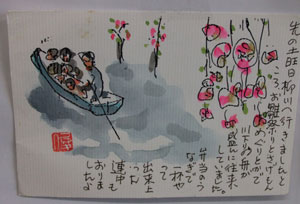 先の土旺日柳川へ行きましたと
ころお雛祭りとさげもん
めぐりとかで
川下りの舟が
盛んに往来
していました。
弁当のう
なぎで
一杯や
って
出来上
った
連中も
おりま
したよ